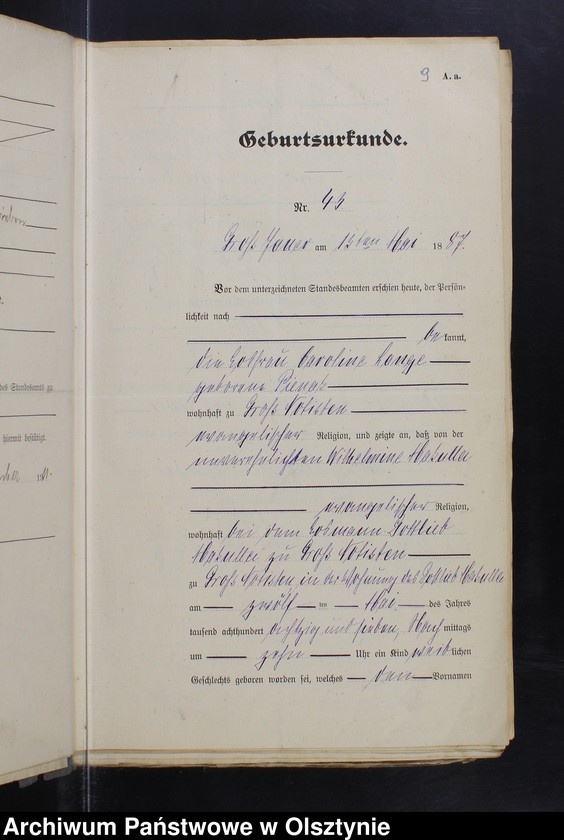 9 A. a.
Geburtsurkunde.
Nr. 43
Groß Jauer am 13ten Mai 1887.
Vor dem unterzeichneten Standesbeamten erschien heute, der Persön-
lichkeit nach
bekannt,
die Losfrau Caroline Lange
geborene
wohnhaft zu Groß Notisten
evangelischer Religion, und zeigte an, daß von der
unverehelichten Wilhelmine
evangelischer Religion,
wohnhaft bei dem Losmann Gottlieb
zu Groß Notisten
zu Groß Notisten in der Wohnung des Gottlieb
am zwölf ten Mai des Jahres
tausend achthundert achtzig und sieben, Nachmittags
um zehn Uhr ein Kind weiblichen
Geschlechts geboren worden sei, welches den Vornamen
des Standesamts zu
hiermit bestätigt.
Archiwum Państwowe w Olsztynie